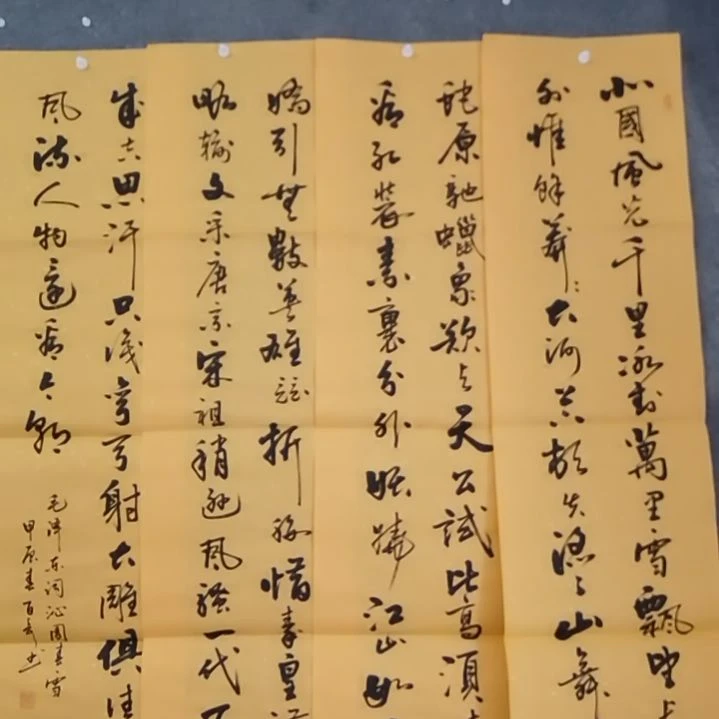 北國風光千里冰封萬里雪飄望
外惟餘莽々大河上下頓失滔々山舞
蛇原馳蠟象欲与天公試比高須
看紅裝素裹分外妖嬈江山如
嬌引無數英雄競折腰惜秦皇
略輸文采唐宗宋祖稍遜風騷一代
成吉思汗只識弯弓射大雕俱往
風流人物還看今朝
毛泽东词沁園春雪
甲辰春百书